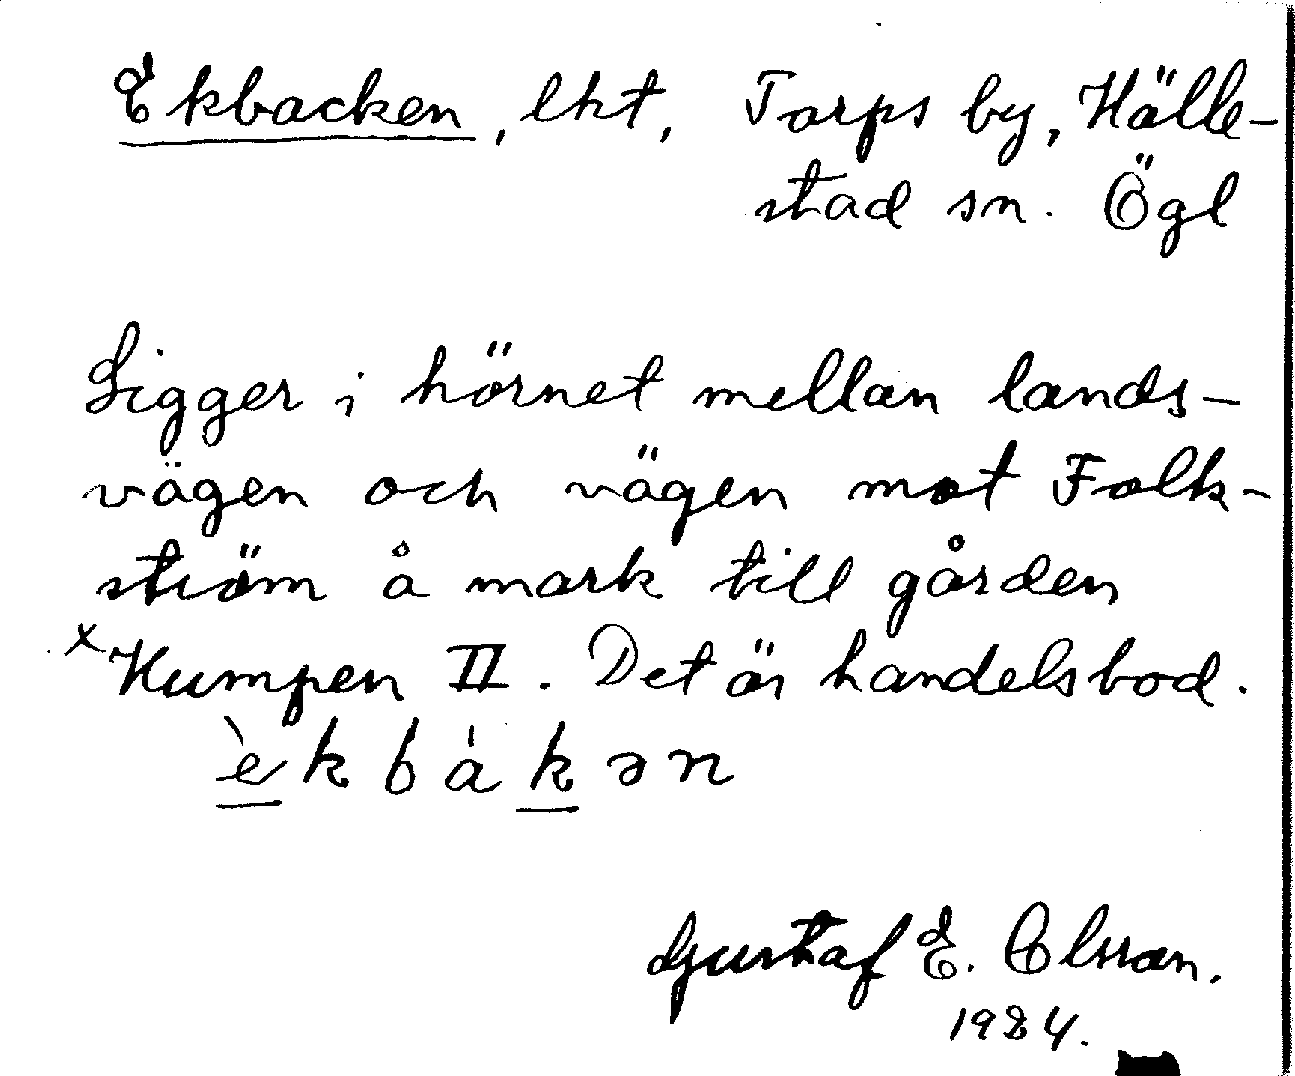 Ekbacken, lht, Torps by, Hälle-
stad sn. Ögl
Ligger i hörnet mellan lands-
vägen och vägen mot Folk-
ström å mark till gården
x Kumpen II. Det är handelsbod.
èkbákən
Gustaf E. Olsson.
1984.